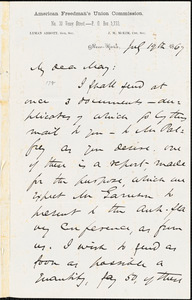 American Freedman's Union Commission,
No. 76 Percy Street—P. O. Box 5,733,
LYMAN ABBOTT, Gen. Sec. J. M. McKIM, Cor. Sec.
New-York, July 19th 1867
My dear May:
I shall send at
once 3 documents—du-
plicates of which I by this
mail to you—to Mr Pal-
frey as you desire. One
of these is a report made
for the purpose which we
expect Mr Garrison to
present to the Anti-Sla-
very Conference, as from
us. I wish to send as
soon as possible a
quantity, say 50, of these